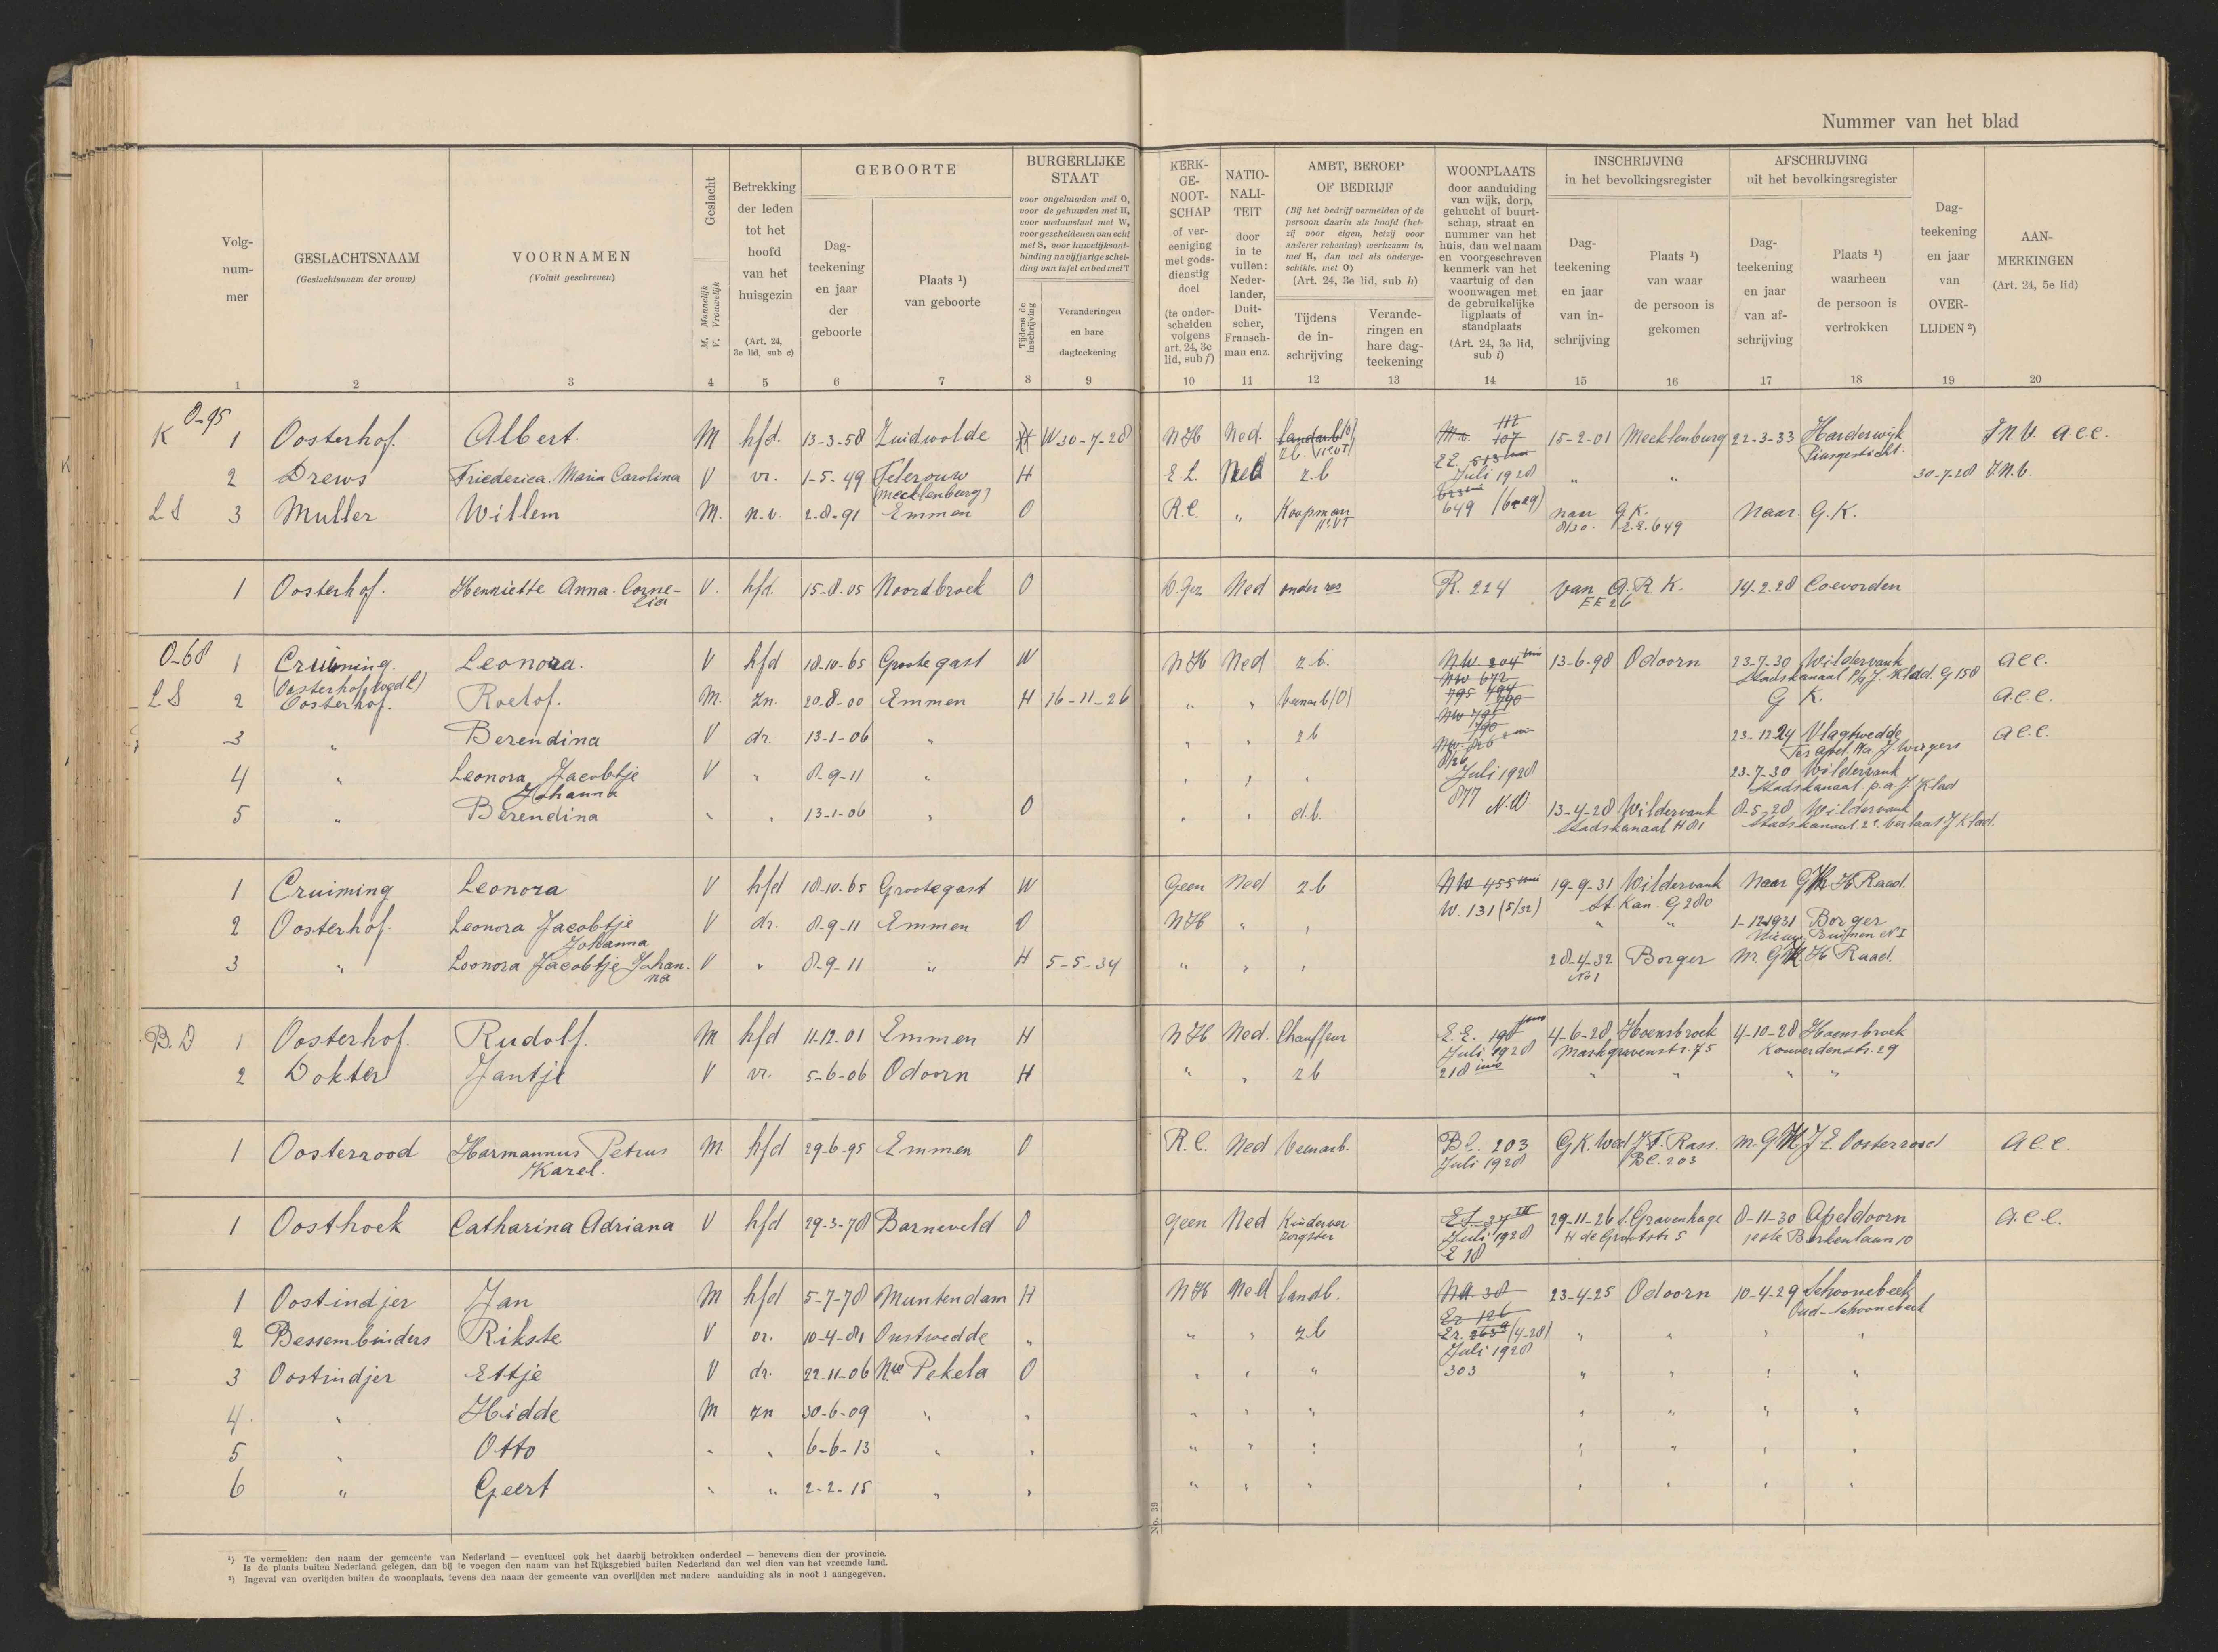 Nummer van het blad
Volg-
num-
mer
GESLACHTSNAAM
(Geslachtsnaam der vrouw)
VOORNAMEN
(Voluit geschreven)
Geslacht
M. Mannelijk
V. Vrouwelijk
Betrekking
der leden
tot het
hoofd
van het
huisgezin
(Art. 24,
3e lid, sub c)
GEBOORTE
Dag-
teekening
en jaar
der
geboorte
Plaats ¹)
van geboorte
BURGERLIJKE
STAAT
voor ongehuwden met O,
voor de gehuwden met H,
voor weduwstaat met W,
voor gescheidenen van echt
met S, voor huwelijksont-
binding na vijfjarige schei-
ding van tafel en bed met T
Tijdens de
inschrijving
Veranderingen
en hare
dagteekening
KERK-
GE-
NOOT-
SCHAP
of ver-
eeniging
met gods-
dienstig
doel
(te onder-
scheiden
volgens
art. 24, 3e
lid, sub f)
NATIO-
NALI-
TEIT
door
in te
vullen:
Neder-
lander,
Duit-
scher,
Fransch-
man enz.
AMBT, BEROEP
OF BEDRIJF
(Bij het bedrijf vermelden of de
persoon daarin als hoofd (het-
zij voor eigen, hetzij voor
anderer rekening) werkzaam is,
met H, dan wel als onderge-
schikte, met O)
(Art. 24, 3e lid, sub h)
Tijdens
de in-
schrijving
Verande-
ringen en
hare dag-
teekening
WOONPLAATS
door aanduiding
van wijk, dorp,
gehucht of buurt-
schap, straat en
nummer van het
huis, dan wel naam
en voorgeschreven
kenmerk van het
vaartuig of den
woonwagen met
de gebruikelijke
ligplaats of
standplaats
(Art. 24, 3e lid,
sub i)
INSCHRIJVING
in het bevolkingsregister
Dag-
teekening
en jaar
van in-
schrijving
Plaats ¹)
van waar
de persoon is
gekomen
AFSCHRIJVING
uit het bevolkingsregister
Dag-
teekening
en jaar
van af-
schrijving
Plaats ¹)
waarheen
de persoon is
vertrokken
Dag-
teekening
en jaar
van
OVER-
LIJDEN ²)
AAN-
MERKINGEN
(Art. 24, 5e lid)
1 2 3 4 5 6 7 8 9 10 11 12 13 14 15 16 17 18 19 20
K 0-95
1 Oosterhof. Albert. M hfd. 13-3-58 Zuidwolde W 30-7-28 NH Ned. 15-2-01 Mecklenburg 22-3-33 Harderwijk
2 Drews Friederica Maria Carolina V vr. 1-5-49 Teterouw H E.L. Ned z.b Juli 1928 " " 30-7-28
(Mecklenburg)
LS 3 Muller Willem M. n.v. 2-8-91 Emmen O R.C. " Koopman 649 van G.K. Naar G.K.
8/30. E.E. 649
1 Oosterhof. Henriette Anna Corne- V. hfd. 15-8-05 Noordbroek O Ned R. 224 van G.R.K. 14-2-28 Coevorden
lia EE 26
0-68 1 Cruiming. Leonora. V hfd 18-10-65 Grootegast W NH Ned z.b. 13-6-98 Odoorn 23-7-30 Wildervank a c c.
Stadskanaal p/a J. Klad. G 158
LS 2 Oosterhof. Roelof. M. zn. 20-8-00 Emmen H 16-11-26 " " G K. a.c.c.
3 " Berendina V dr. 13-1-06 " " " z b 23-12-24 Vlagtwedde a c c.
4 " Leonora Jacobtje V " 8-9-11 " Juli 1928 23-7-30 Wildervank
Johanna 877 Stadskanaal p.a. J. Klad
5 " Berendina " " 13-1-06 " O " " d.b. 13-4-28 Wildervank 8-5-28 Wildervank
Stadskanaal H 81
1 Cruiming Leonora V hfd 18-10-65 Grootegast W Geen Ned z b 19-9-31 Wildervank Naar G.K. H Raad.
W. 131 (5/32) St. Kan. G 280
2 Oosterhof. Leonora Jacobtje V dr. 8-9-11 Emmen O NH " " " " 1-12-1931 Borger
Johanna Nieuw Buinen
3 " Leonora Jacobtje Johan- V " 8-9-11 " H 5-5-34 " " " 28-4-32 Borger H Raad.
na No 1
B.D 1 Oosterhof. Rudolf. M hfd 11-12-01 Emmen H NH Ned. Chauffeur E.E. 4-6-28 Hoensbroek 4-10-28 Hoensbroek
Juli 1928 Markgravenstr. 75 Kouvenderstr. 29
2 Dokter Jantje V vr. 5-6-06 Odoorn H " " z b 218 " " " "
1 Oosterrood Harmannus Petrus M. hfd 29-6-95 Emmen O R.C. Ned Veenarb. Bl. 203 G K. Wed J.E. Oosterrood a c c.
Karel. Juli 1928 Bl. 203
1 Oosthoek Catharina Adriana V hfd 29-3-78 Barneveld O geen Ned Kinderver 29-11-26 s.Gravenhage 8-11-30 Apeldoorn a.c.c.
zorgster Juli 1928 H de Grootstr 5 Berkenlaan 10
E 18
1 Oostindjer Jan M hfd 5-7-78 Muntendam H NH Ned landb. 23-4-25 Odoorn 10-4-29 Schoonebeek
Oud-Schoonebeek
2 Bessembinders Rikste V vr. 10-4-81 Onstwedde " " " z b (4-28) " " " "
Juli 1928
3 Oostindjer Ettje V dr. 22-11-06 Nwe Pekela O " " " 303 " " " "
4 " Hidde M zn 30-6-09 " " " " " " " " "
5 " Otto " " 6-6-13 " " " " " " " " "
6 " Geert " " 2-2-15 " " " " " " " " "
No. 39
¹) Te vermelden: den naam der gemeente van Nederland — eventueel ook het daarbij betrokken onderdeel — benevens dien der provincie.
Is de plaats buiten Nederland gelegen, dan bij te voegen den naam van het Rijksgebied buiten Nederland dan wel dien van het vreemde land.
²) Ingeval van overlijden buiten de woonplaats, tevens den naam der gemeente van overlijden met nadere aanduiding als in noot 1 aangegeven.